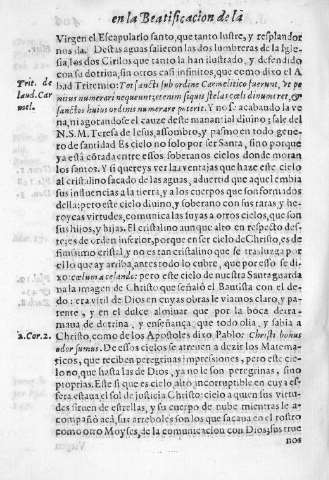 en la Beatificacion de la
Virgen el Escapulario santo, que tanto lustre, y resplandor
nos da. Destas aguas salieron las dos lumbreras de la Igle-
sia, los dos Cirilos que tanto la han ilustrado, y defendido
con su dotrina, sin otros casi infinitos, que como dixo el A
bad Tritemio: Tot sancti sub ordine Carmelitico fuerunt, vt pe
nitus numerari nequeunt, etenim siquis stelas cœli dinumeret, &
sanctos huius ordinis numerare poterit. Y no se acabando la ve
na, ni agotandose el cauze deste manantial diuino; sale del
N. S. M. Teresa de Iesus, assombro, y pasmo en todo gene-
ro de santidad Es cielo no solo por ser Santa, sino porque
ya està côtada entre essos soberanos cielos donde moran
los santos. Y si quereys ver las ventajas que haze este cielo
al cristalino sacado de las aguas, aduertid que aquel embia
sus influencias a la tierra, y a los cuerpos que son formados
della: pero este cielo diuino, y soberano con sus raras y he-
roycas virtudes, comunica las suyas a otros cielos, que son
sus hijos, y hijas. El cristalino aunque alto en respecto des-
te; es de orden inferior, porque en ser cielo de Christo, es de
finissimo cristal y no es tan cristalino que se trasluzga por
el lo que ay arriba, antes todo lo cubre, que por esso se di-
xo: cœlum a celando: pero este cielo de nuestra Santa guarda
na la imagen de Christo que señalò el Bautista con el de-
do: era viril de Dios en cuyas obras le viamos claro, y pa-
tente, y en el dulce almiuar que por la boca derra-
maua de dotrina, y enseñança; que todo olia, y sabia a
Christo, como de los Apostoles dixo Pablo: Christi bonus
odor sumus. De essos cielos se atreuen a dezir los Matema-
ticos, que reciben peregrinas impressiones, pero este cie-
lo no, que hasta las de Dios, ya no le son peregrinas, sino
proprias. Este si que es cielo, alto, incorruptible en cuya es-
fera estaua el sol de justicia Christo: cielo a quien sus virtu-
des siruen de estrellas, y su cuerpo de nube mientras le a-
compañò acà, sus arreboles son los que sacaua en el rostro
como otro Moyses, de la comunicacion con Dios; sus true
nos
Trit. de
laud. Car
mel.
2. Cor. 2.